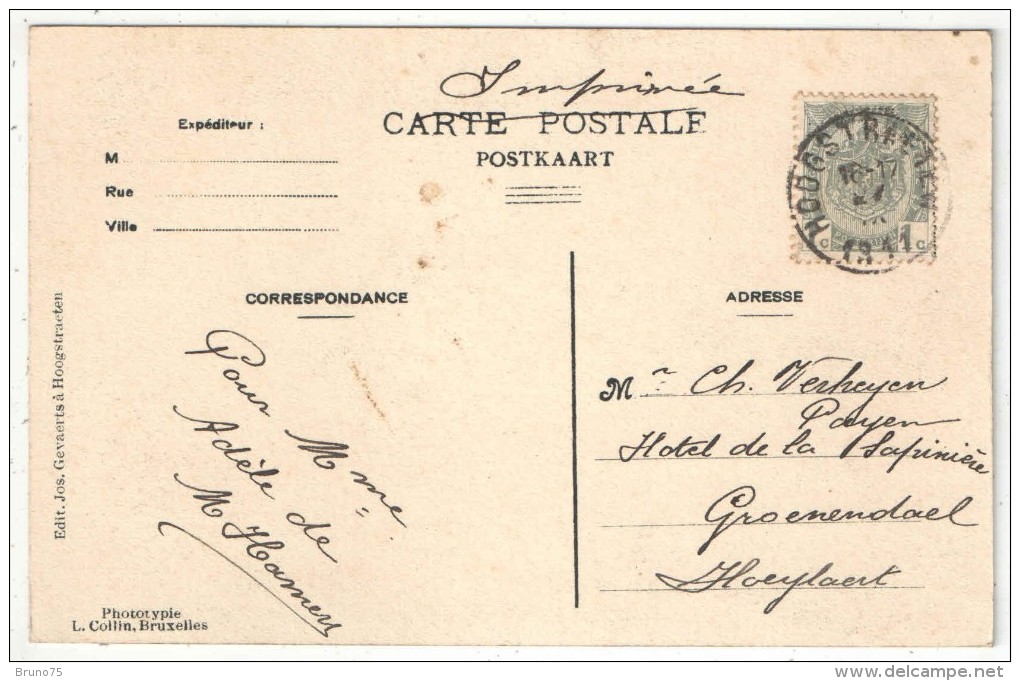 Imprimée
CARTE POSTALE
POSTKAART
Expéditeur :
M
Rue
Ville
HOOGSTRAETEN
16-17
1911
1 C
C
CORRESPONDANCE
ADRESSE
Pour Mme
Adèle de
M Hamers
Mr Ch. Verheyen
Payen
Hotel de la Sapinière
Groenendael
Hoeylaert
Edit. Jos. Gevaerts à Hoogstraeten
Phototypie
L. Collin, Bruxelles
Bruno75
www.delcampe.net